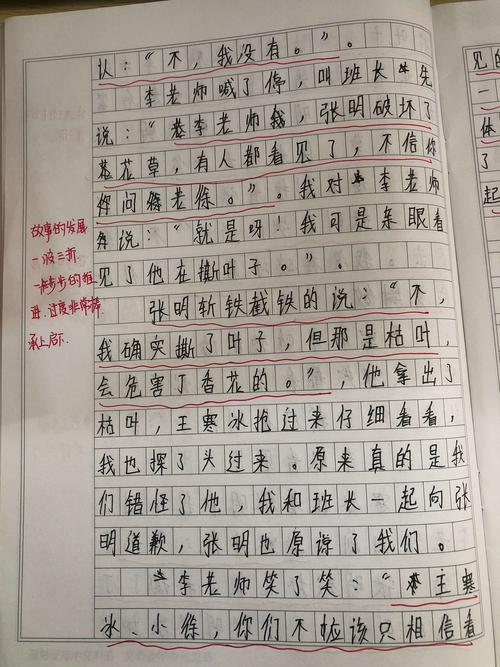 认：“不，我没有。”。
李老师喊了停，叫班长先
说：“李老师我，张明破坏了
花草，有人都看见了，不信你
问徐老徐。”。我对李老师
说：“就是呀！我可是亲眼看
见了他在撕叶子。”。
张明斩铁截铁的说：“不，
我确实撕了叶子，但那是枯叶，
会危害丁香花的。”，他拿出了
枯叶，王寒冰抢过来仔细看看，
我也探了头过来。原来真的是我
们错怪了他，我和班长一起向张
明道歉，张明也原谅了我们。
李老师笑了笑：“王寒
冰、小徐，你们不应该只相信看
故事的发展
一波三折
一步步的推
进，过度非常棒
承上启下.
见的
一
体
了
起